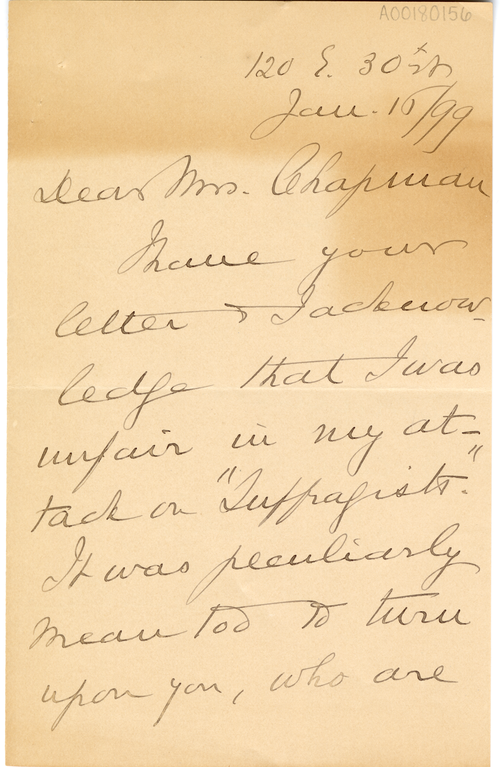 A00180156
120 E. 30th St
Jan. 16/99
Dear Mrs. Chapman
I have your
letter & I acknow-
ledge that I was
unfair in my at-
tack on "Suffragists."
It was peculiarly
mean too to turn
upon you, who are